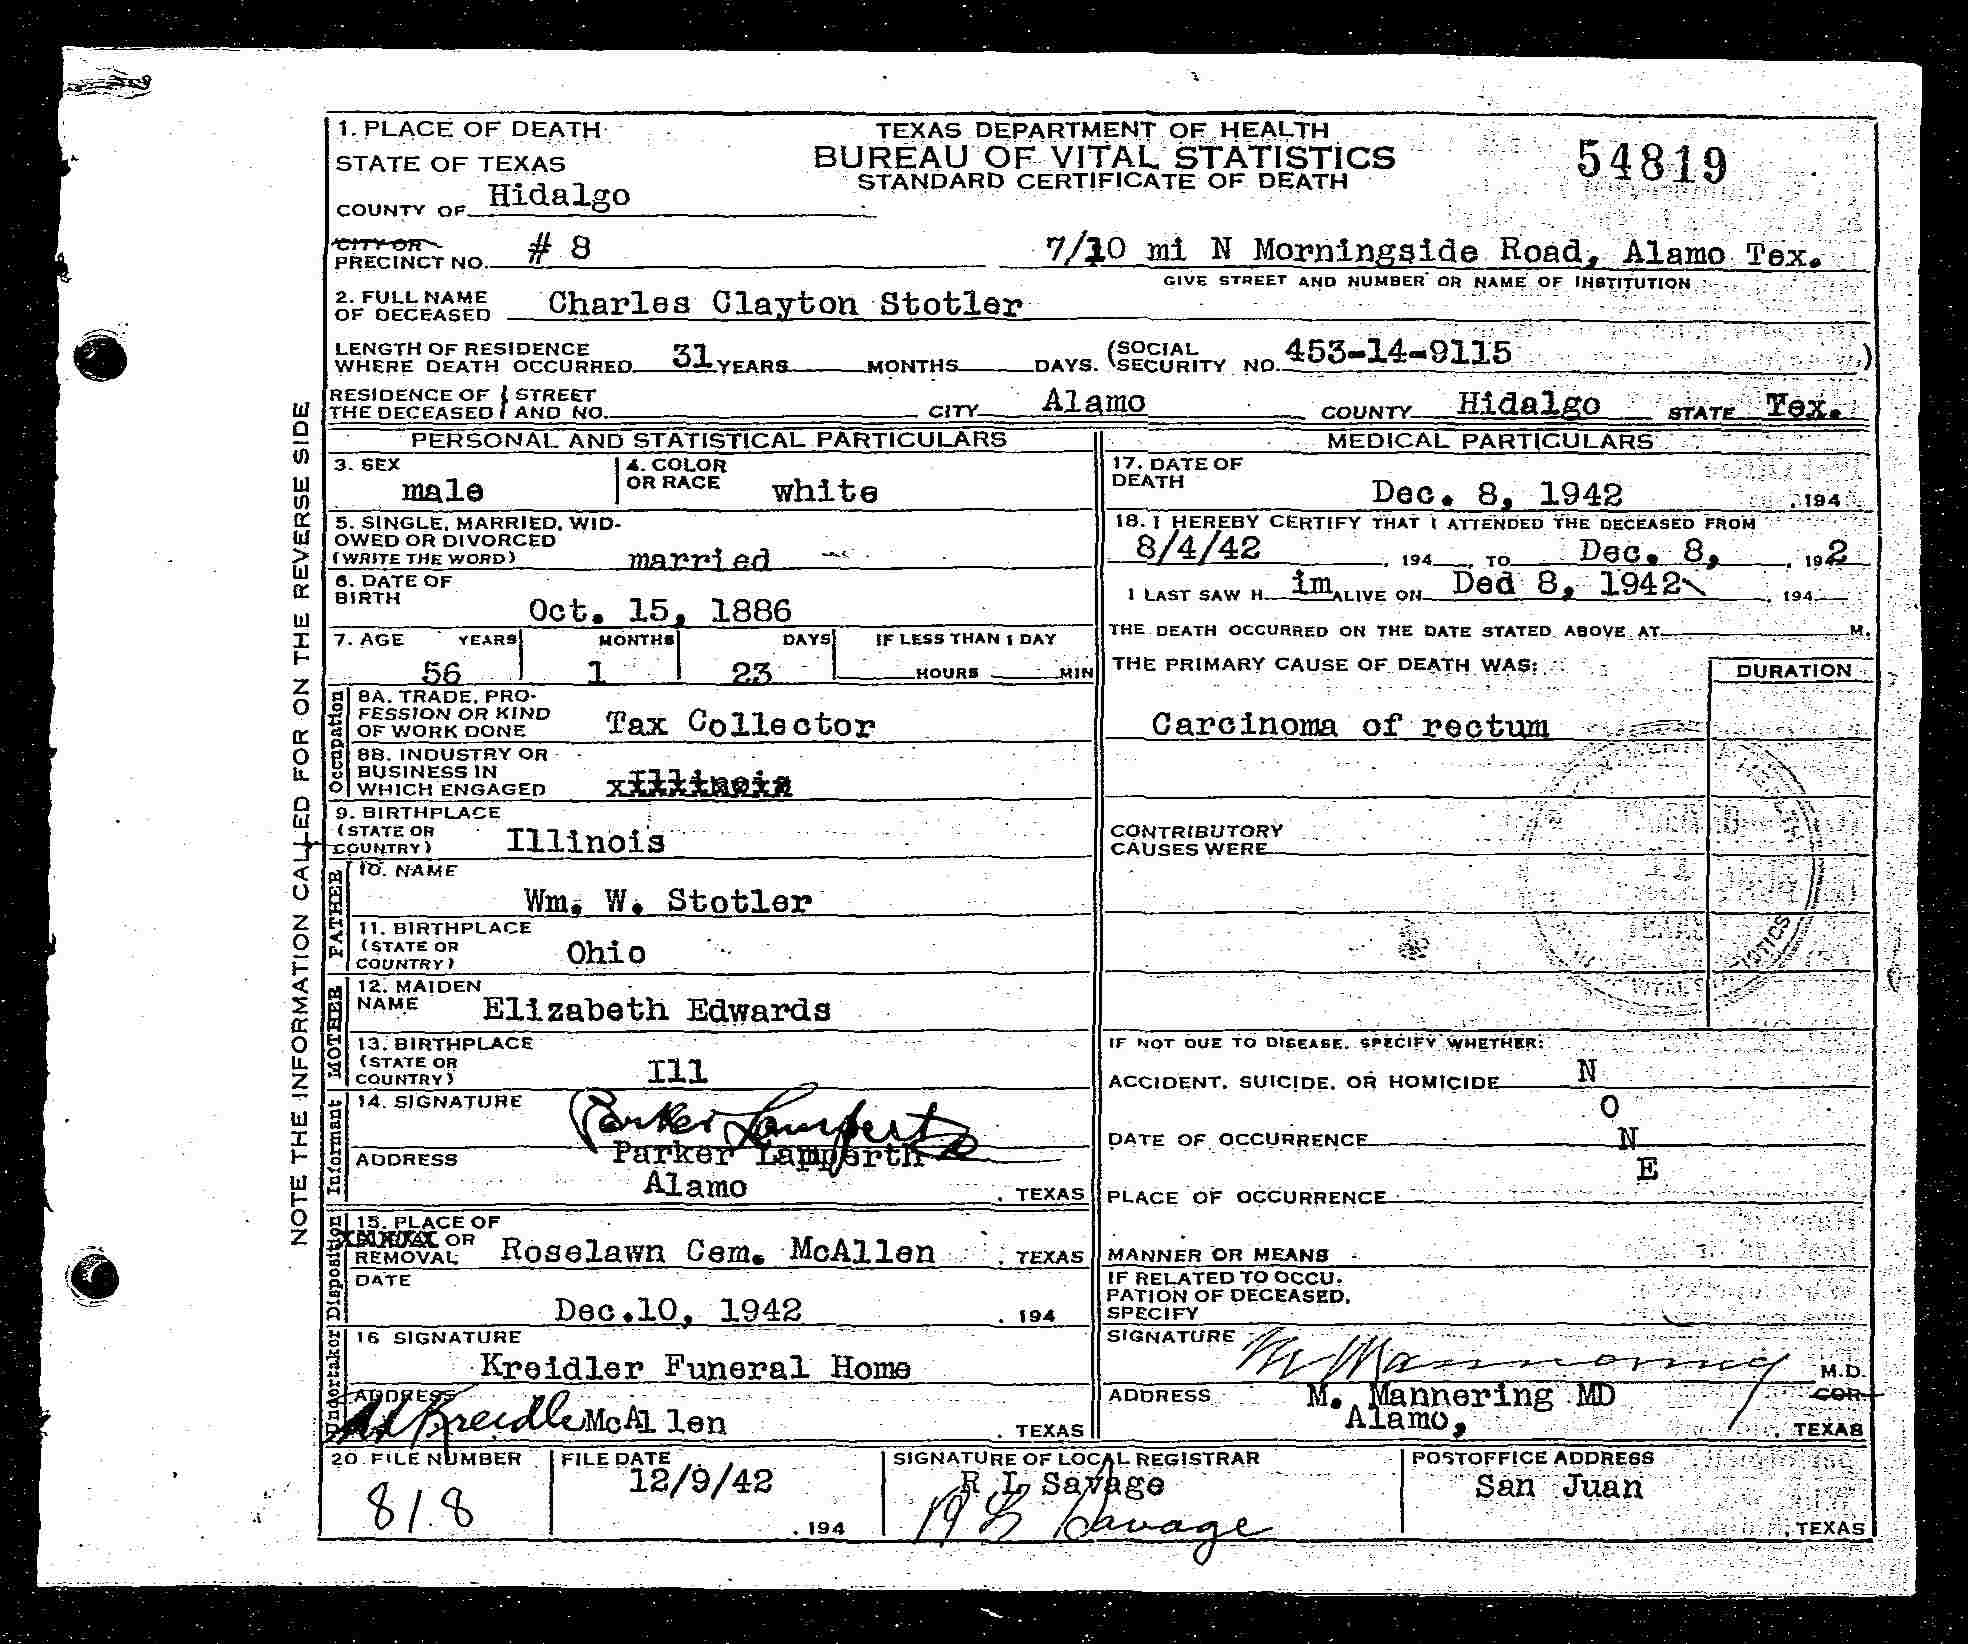 1. PLACE OF DEATH
STATE OF TEXAS
COUNTY OF Hidalgo
TEXAS DEPARTMENT OF HEALTH
BUREAU OF VITAL STATISTICS
STANDARD CERTIFICATE OF DEATH
54819
CITY OR
PRECINCT NO. # 8
7/10 mi N Morningside Road, Alamo Tex.
GIVE STREET AND NUMBER OR NAME OF INSTITUTION
2. FULL NAME
OF DECEASED Charles Clayton Stotler
LENGTH OF RESIDENCE
WHERE DEATH OCCURRED 31 YEARS MONTHS DAYS. (SOCIAL SECURITY NO. 453-14-9115 )
RESIDENCE OF THE DECEASED { STREET AND NO. CITY Alamo COUNTY Hidalgo STATE Tex.
NOTE THE INFORMATION CALLED FOR ON THE REVERSE SIDE
PERSONAL AND STATISTICAL PARTICULARS
3. SEX
male
4. COLOR
OR RACE white
5. SINGLE, MARRIED, WID-
OWED OR DIVORCED
(WRITE THE WORD) married
6. DATE OF
BIRTH
Oct. 15, 1886
7. AGE YEARS MONTHS DAYS IF LESS THAN 1 DAY
56 1 23 HOURS MIN
Occupation
8A. TRADE, PRO-
FESSION OR KIND
OF WORK DONE Tax Collector
8B. INDUSTRY OR
BUSINESS IN
WHICH ENGAGED
9. BIRTHPLACE
(STATE OR
COUNTRY) Illinois
FATHER
10. NAME
Wm. W. Stotler
11. BIRTHPLACE
(STATE OR
COUNTRY) Ohio
MOTHER
12. MAIDEN
NAME Elizabeth Edwards
13. BIRTHPLACE
(STATE OR
COUNTRY) Ill
Informant
14. SIGNATURE Parker Lamperth
ADDRESS Parker Lamperth
Alamo , TEXAS
Disposition
15. PLACE OF
OR
REMOVAL Roselawn Cem. McAllen , TEXAS
DATE
Dec.10, 1942 , 194
Undertaker
16 SIGNATURE
Kreidler Funeral Home
ADDRESS
Kreidle McAllen , TEXAS
MEDICAL PARTICULARS
17. DATE OF
DEATH Dec. 8, 1942 , 194
18. I HEREBY CERTIFY THAT I ATTENDED THE DECEASED FROM
8/4/42 , 194 , TO Dec. 8, , 192
I LAST SAW H im ALIVE ON Ded 8, 1942 , 194
THE DEATH OCCURRED ON THE DATE STATED ABOVE AT M.
THE PRIMARY CAUSE OF DEATH WAS: DURATION
Carcinoma of rectum
CONTRIBUTORY
CAUSES WERE
IF NOT DUE TO DISEASE, SPECIFY WHETHER:
ACCIDENT, SUICIDE, OR HOMICIDE N
O
DATE OF OCCURRENCE N
E
PLACE OF OCCURRENCE
MANNER OR MEANS
IF RELATED TO OCCU-
PATION OF DECEASED,
SPECIFY
SIGNATURE M Mannering M.D.
ADDRESS M. Mannering MD COR
Alamo, , TEXAS
20. FILE NUMBER
818
FILE DATE
12/9/42
, 194
SIGNATURE OF LOCAL REGISTRAR
R L Savage
R L Savage
POSTOFFICE ADDRESS
San Juan
, TEXAS